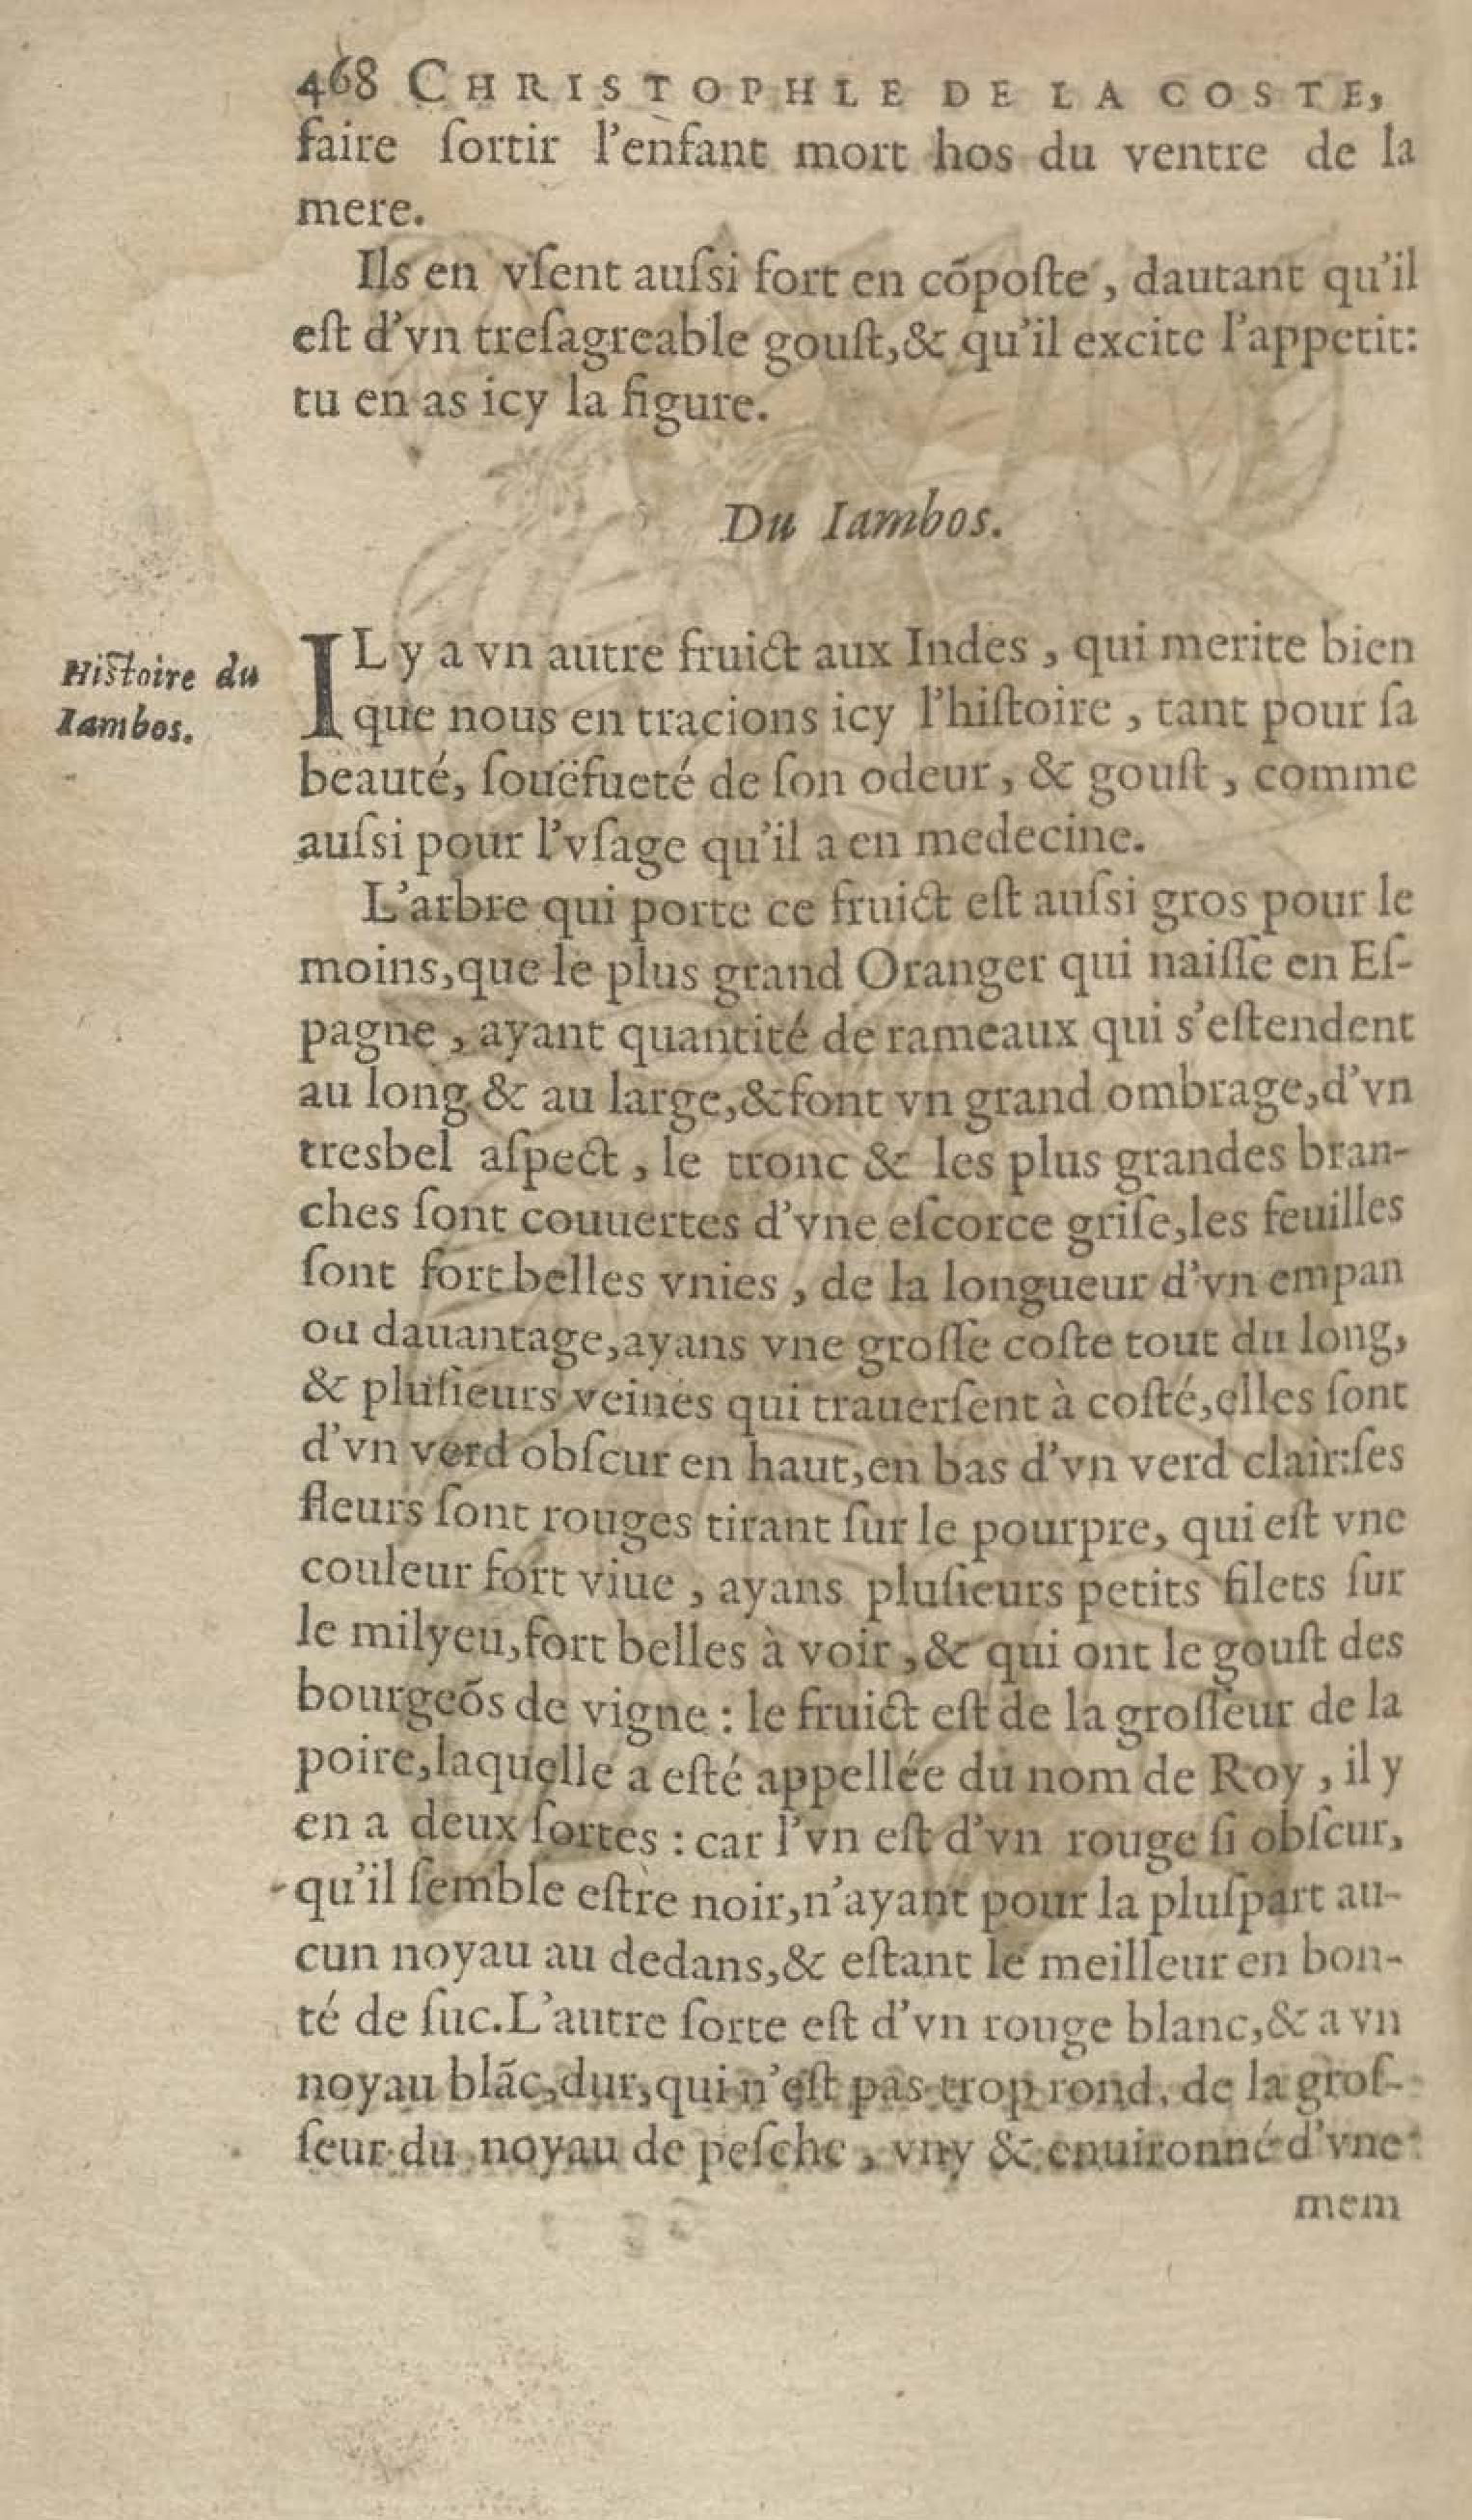 468 CHRISTOPHLE DE LA COSTE,
faire ſortir l'enfant mort hos du ventre de la
mere.
Ils en vſent auſsi fort en cõpoſte, dautant qu'il
eſt d'vn treſagreable gouſt,& qu'il excite l'appetit:
tu en as icy la figure.
Du Iambos.
Hiſtoire du
Iambos.
IL y a vn autre fruict aux Indes, qui merite bien
que nous en tracions icy l'hiſtoire, tant pour ſa
beauté, ſouëfueté de ſon odeur, & gouſt, comme
auſsi pour l'vſage qu'il a en medecine.
L'arbre qui porte ce fruict eſt auſsi gros pour le
moins,que le plus grand Oranger qui naiſſe en Eſ-
pagne, ayant quantité de rameaux qui s'eſtendent
au long & au large,& font vn grand ombrage,d'vn
tresbel aſpect, le tronc & les plus grandes bran-
ches ſont couuertes d'vne eſcorce griſe,les feuilles
ſont fort belles vnies, de la longueur d'vn empan
ou dauantage,ayans vne groſſe coſte tout du long,
& pluſieurs veines qui trauerſent à coſté,elles ſont
d'vn verd obſcur en haut,en bas d'vn verd clair:ſes
fleurs ſont rouges tirant ſur le pourpre, qui eſt vne
couleur fort viue, ayans pluſieurs petits filets ſur
le milyeu,fort belles à voir,& qui ont le gouſt des
bourgeõs de vigne: le fruict eſt de la groſſeur de la
poire,laquelle a eſté appellée du nom de Roy, il y
en a deux ſortes: car l'vn eſt d'vn rouge ſi obſcur,
qu'il ſemble eſtre noir,n'ayant pour la pluſpart au-
cun noyau au dedans,& eſtant le meilleur en bon-
té de ſuc.L'autre ſorte eſt d'vn rouge blanc,& a vn
noyau blãc,dur,qui n'eſt pas trop rond, de la groſ-
ſeur du noyau de peſche, vny & enuironné d'vne
mem